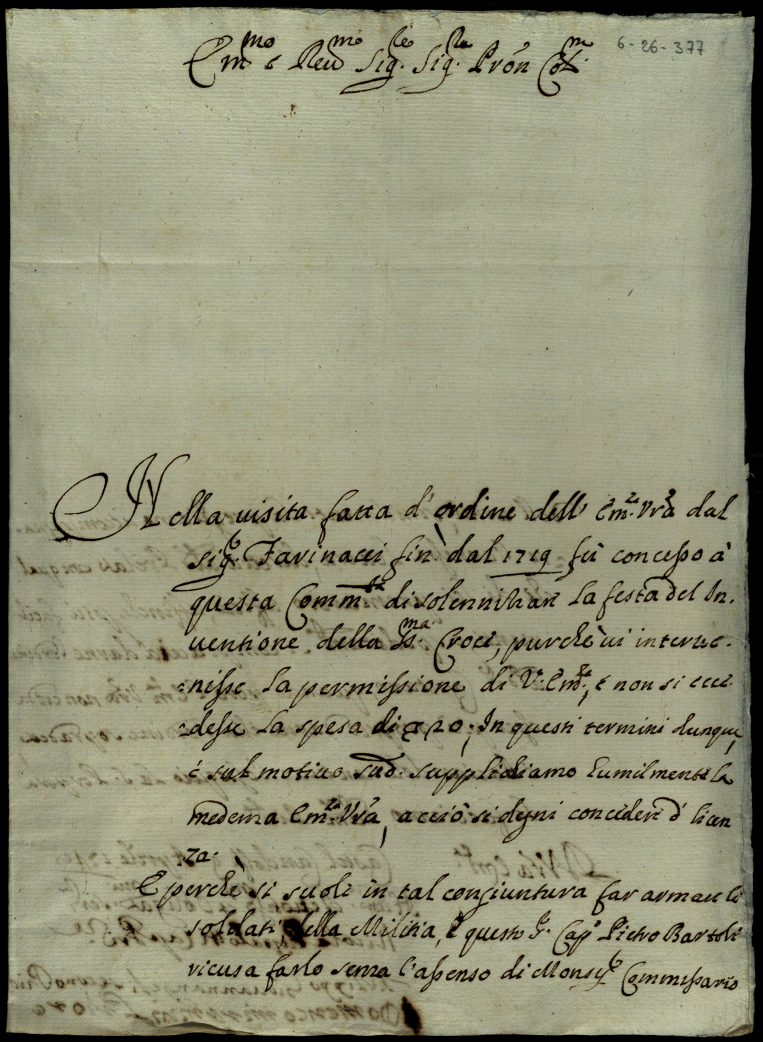 6-26-377
Em.mo e Reu.mo Sig.re Sig.re Prõn Col.mo
Nella visita fatta d'ordine dell' Em.za Vra dal
Sig.e Farinacci fin' dal 1719 fù concesso à
questa Comm.tà di solennihar la festa del In,
uentione della Ss.ma Croce, purchè ui interue,
nisse la permissione di V. Em.za, e non si ecce,
desse la spesa di 20; In questi termini dunque,
é sul motiuo sud.o supplichiamo humilmente la
medema Em.za Vra, acciò si degni concedere d.a licen
za.
E perchè si suole in tal congiuntura far armare li
soldati della Militia, è questo S.e Cap.o Pietro Bartoli
ricusa farlo senza l'assenso di Monsig.e Commissario